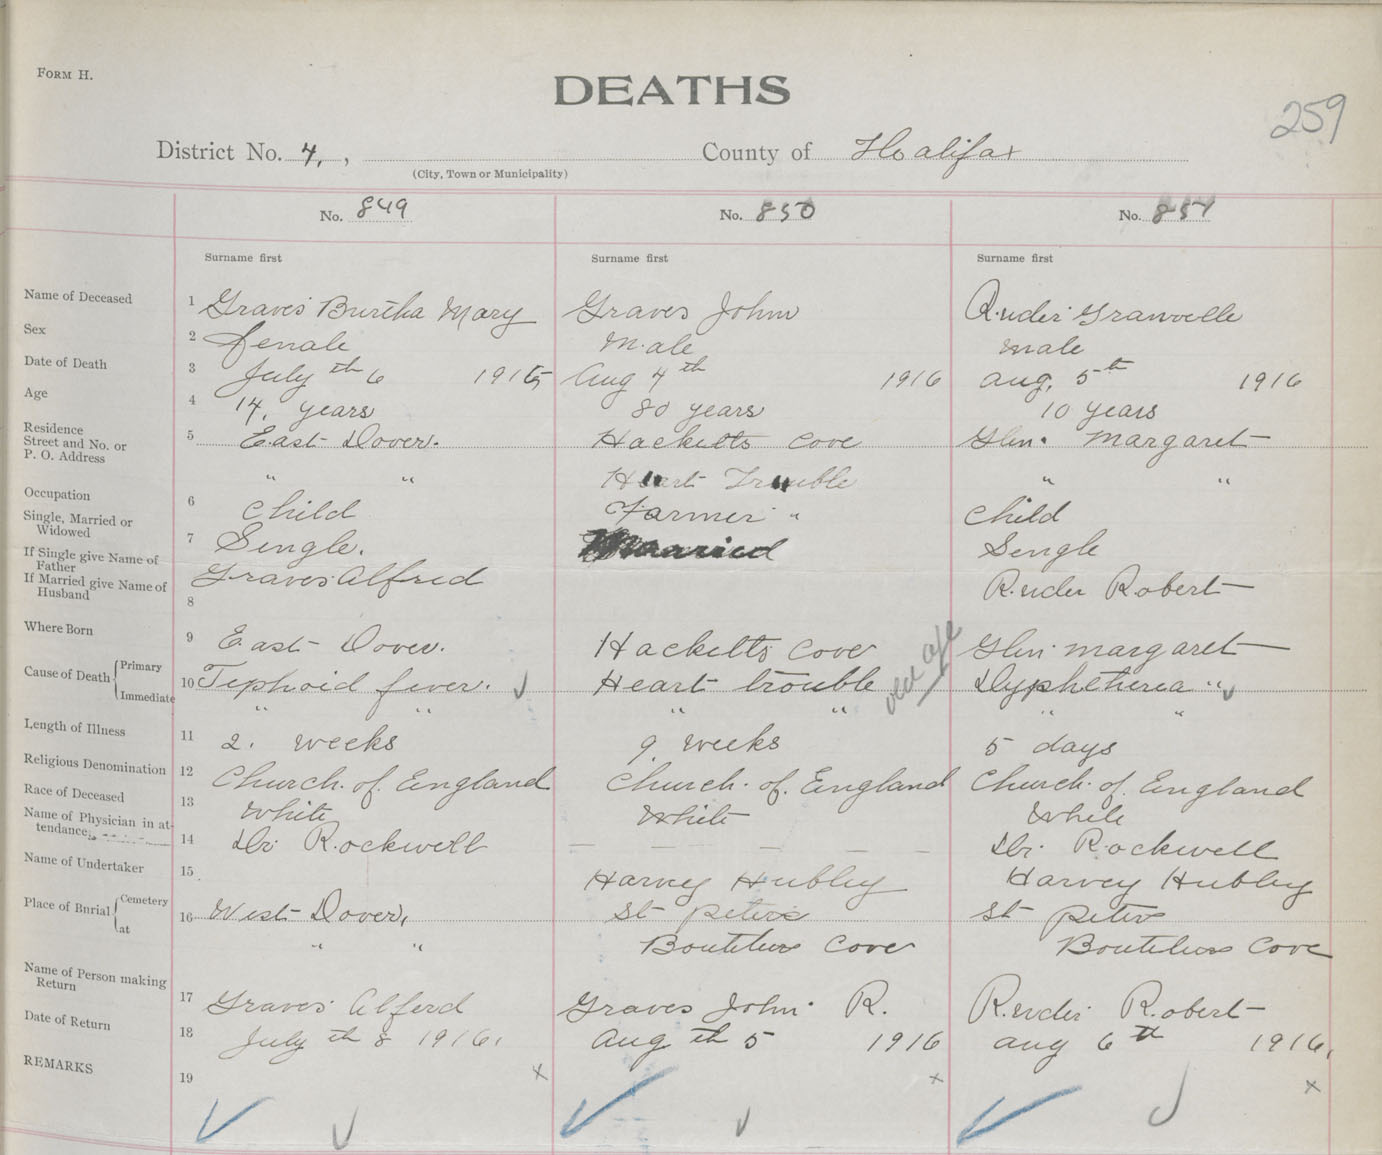 FORM H.
DEATHS
259
District No. 4, , County of Halifax
(City, Town or Municipality)
No. 849 No. 850 No. 851
Surname first Surname first Surname first
Name of Deceased 1 Graves Burtha Mary Graves John Ruder Granvelle
Sex 2 female male male
Date of Death 3 July th 6 1916 Aug 4th 1916 aug, 5th 1916
Age 4 14, years 80 years 10 years
Residence
Street and No. or 5 East Dover. Hacketts Cove Glen. Margaret
P. O. Address
" " Heart Trouble " "
Occupation 6 Child Farmer " Child
Single, Married or
Widowed 7 Sengle. Maaried Sengle
If Single give Name of
Father Graves Alfred Ruder Robert
If Married give Name of
Husband 8
Where Born 9 East Dover. Hacketts Cove Glen margaret
old age
Cause of Death Primary 10 Tephoid fever. Heart trouble Dyphetherea "
Immediate " " " " " "
Length of Illness 11 2. weeks 9 weeks 5 days
Religious Denomination 12 Church. of. England Church. of. England Church. of. England
Race of Deceased 13 White White White
Name of Physician in at-
tendance 14 Dr. Rockwell — — — — — — Dr. Rockwell
Name of Undertaker 15 Harvey Hubley Harvey Hubley
Place of Burial Cemetery 16 West Dover, St Peters St Peters
at " " Boutelers Cove Boutelers Cove
Name of Person making
Return 17 Graves Alferd Graves John R. Ruder Robert
Date of Return 18 July th 8 1916. Aug th 5 1916 aug 6th 1916.
REMARKS 19 x x x